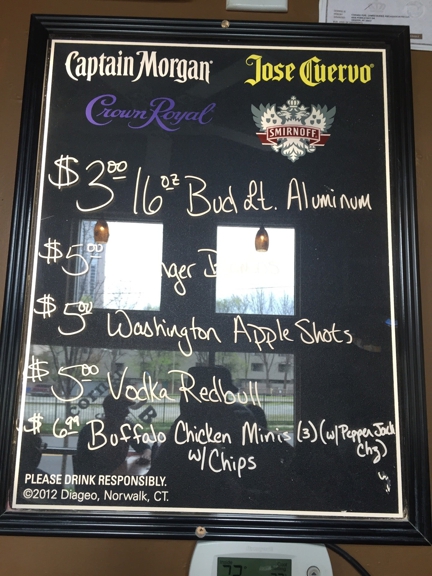 Captain Morgan
Jose Cuervo
Crown Royal
SMIRNOFF
$3.00 16oz Bud Lt. Aluminum
$5.00
$5.00 Washington Apple Shots
$5.00 Vodka Redbull
$6.99 Buffalo Chicken Minis (3) (w/Pepper Jack
Chz)
w/Chips
PLEASE DRINK RESPONSIBLY.
©2012 Diageo, Norwalk, CT.